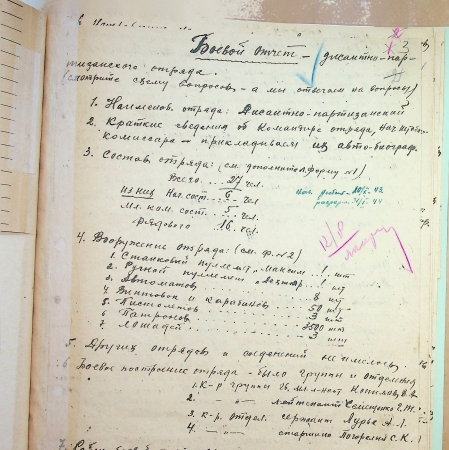 Боевой отчет – дисантно-пар-
тизанского отряда.
(смотрите схему вопросов, – а мы отвечаем на вопросы)
1. Наименов. отряда: Дисантно-партизанский
2. Краткие сведения об Командире отряда, нач. штаба
комиссара – прикладываем из автобиограф.
3. Состав отряда: (см. дополнител. форму №1)
Всего ... 27 чел.
из них Нач. сост. 6 - чел
Мл. ком. сост. ... 5 чел.
Рядового 16 чел.
4. Вооружение отряда: (см. ф. №2)
1. Станковый пулемет „Максим" .. 1 шт
2. Ручной пулемет 1 шт
3. Автоматов 8 шт
4. Винтовок и карабинов 50 шт
5. Пистолетов 3 шт
6. Патронов 3500 шт
7. Лошадей 3 шт
5. Других отрядов и соединений не имелось.
6. Боевое построение отряда – было группы и отделения
1. К-р группы гв. мл. л-нант
2. –"– лейтенант
3. к-р. отдел. сержант Лурье А.Л.
4. –"– старшина Погорелый С.К.